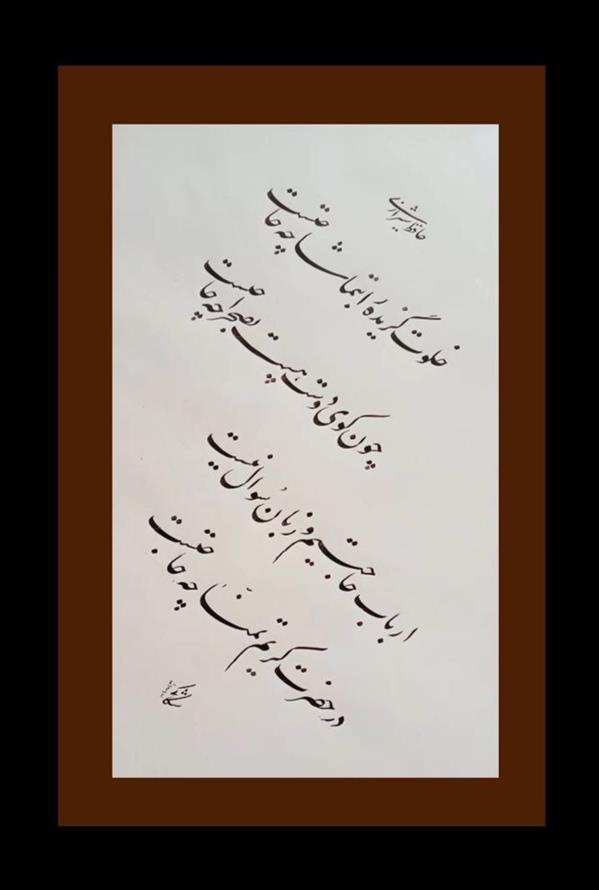 حافظ شیرازی
خلوت گزیده را بتماشا چه حاجتست
چون کوی دوست هست بصحرا چه حاجتست
ارباب حاجتیم و زبان سوال نیست
در حضرت کریم تمنا چه حاجتست